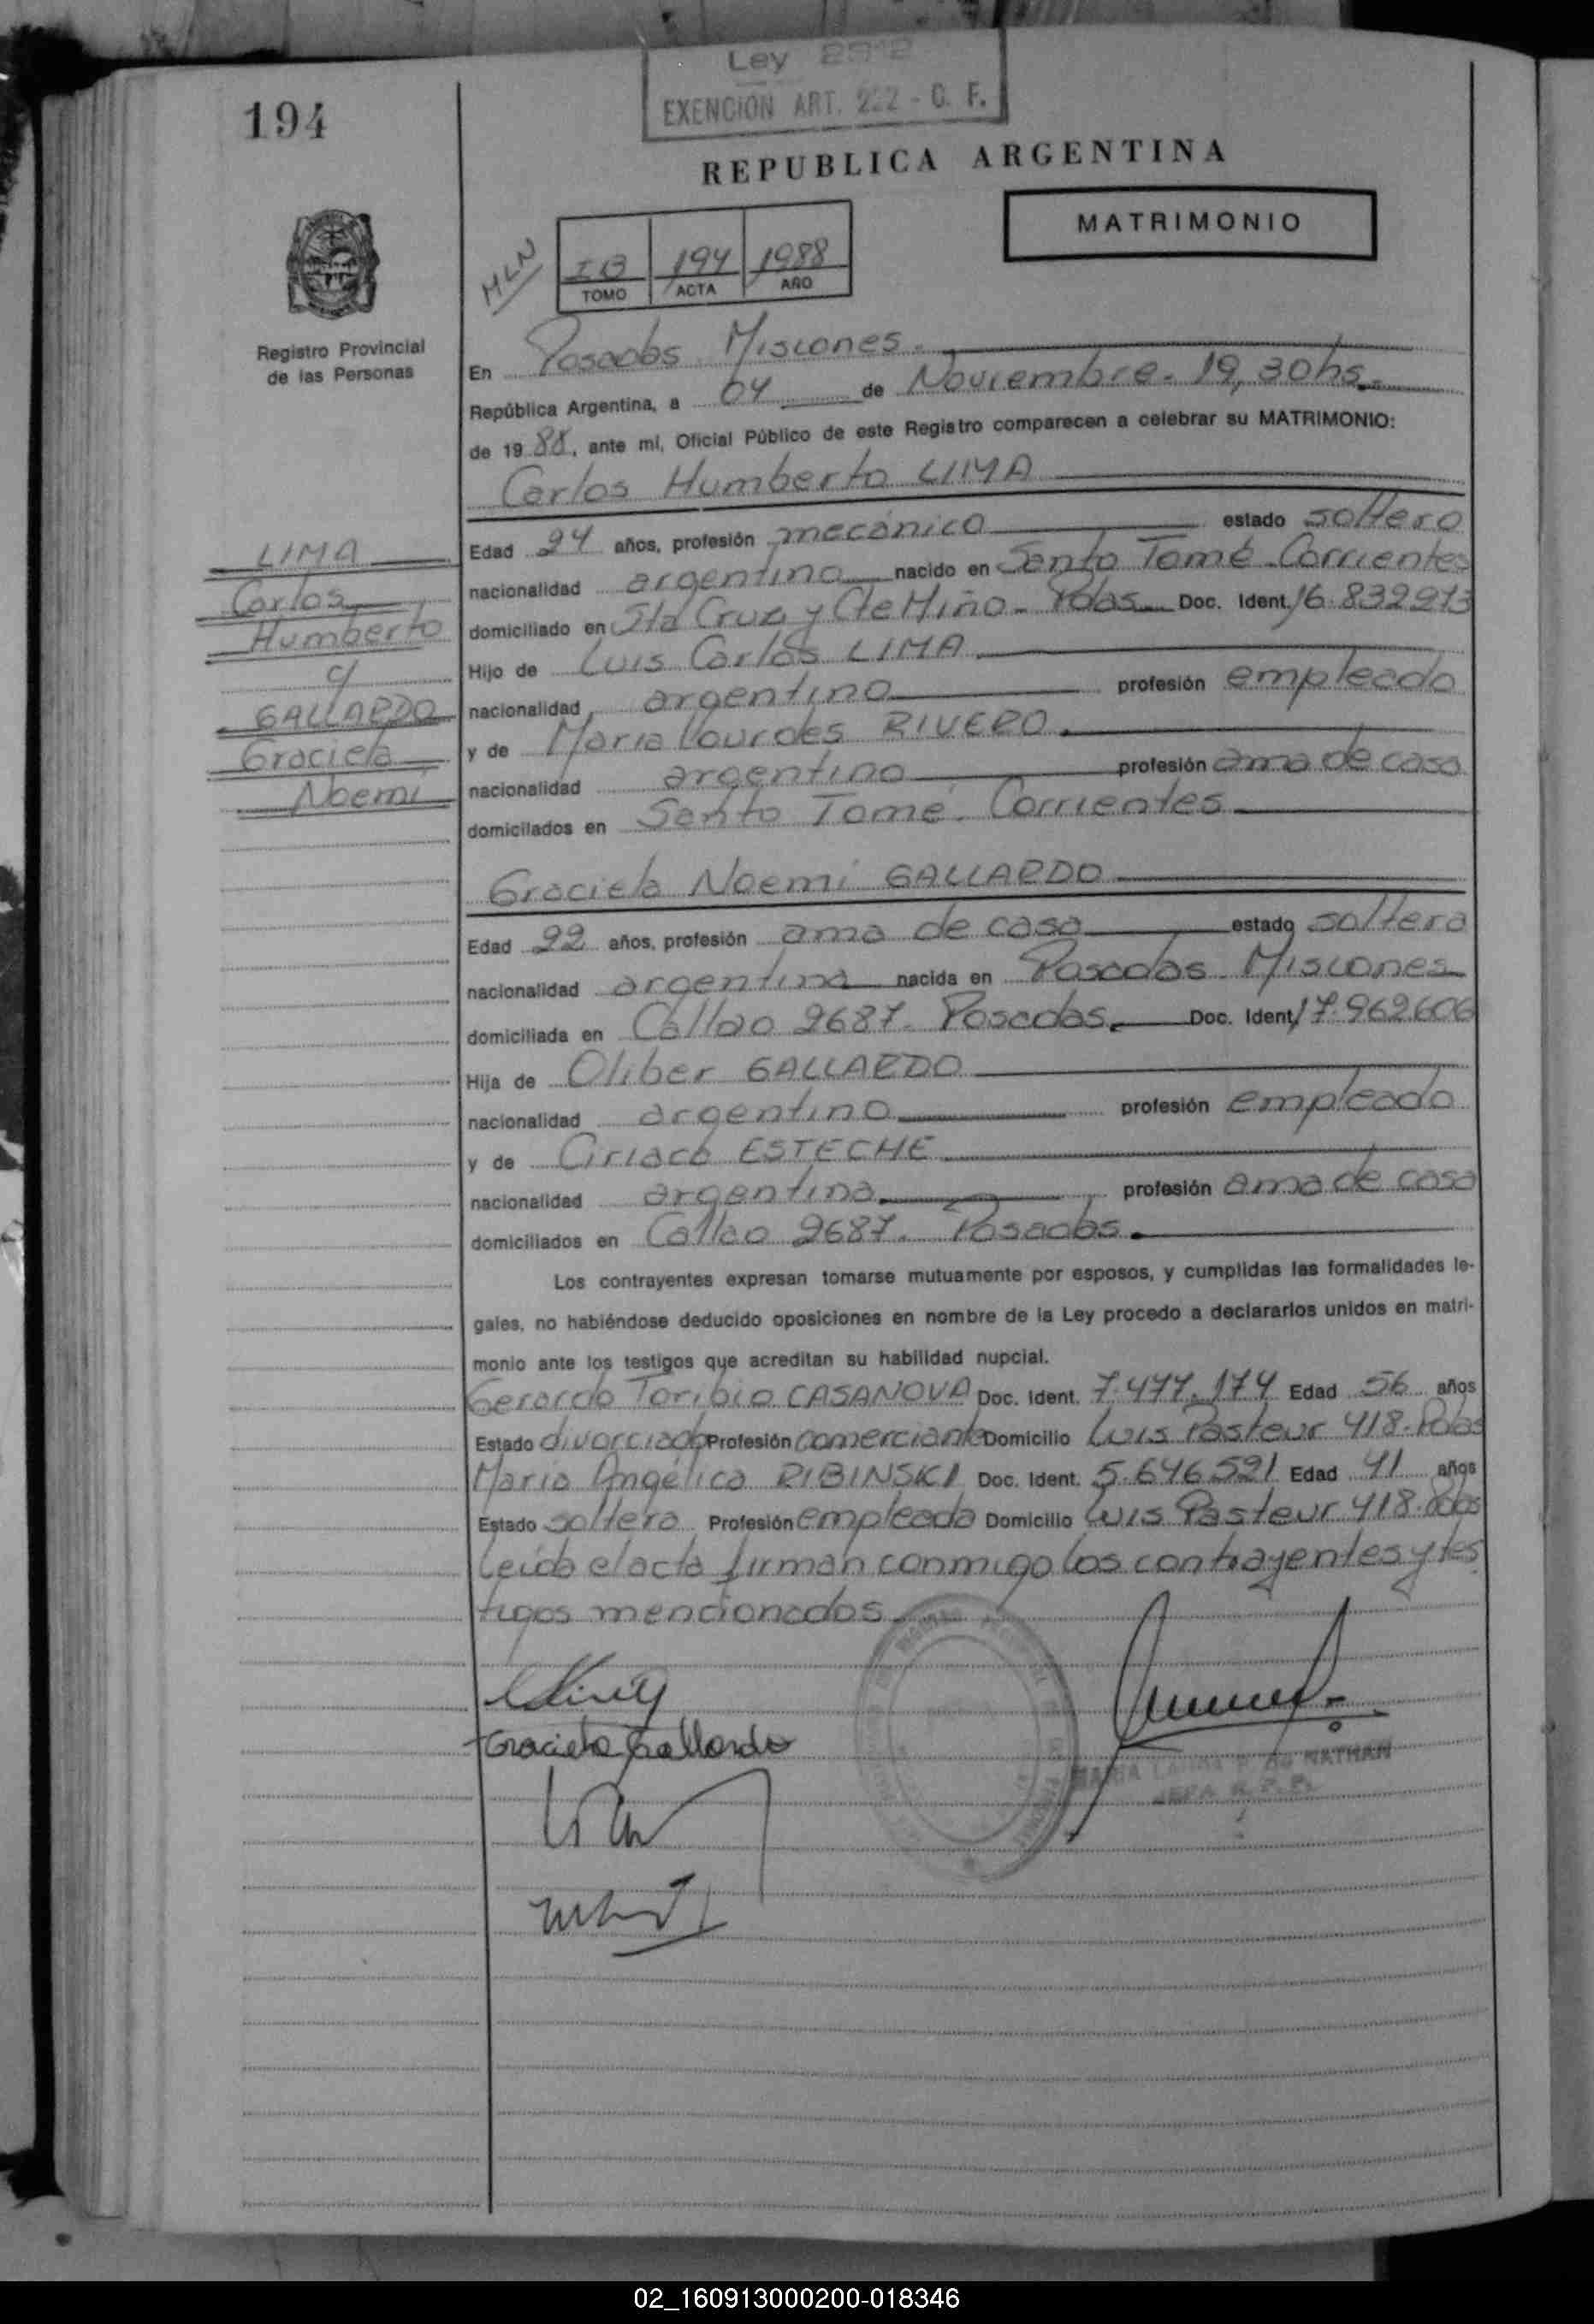 Ley 2512
EXENCION ART. 222 - C. F.
194
REPUBLICA ARGENTINA
MATRIMONIO
MLN
IB 194 1988
TOMO ACTA AÑO
Registro Provincial
de las Personas
En Posadas. Misiones.
República Argentina, a 04 de Noviembre. 19,30hs.
de 19 88, ante mí, Oficial Público de este Registro comparecen a celebrar su MATRIMONIO:
Carlos Humberto LIMA
LIMA
Carlos
Humberto
c/
GALLARDO
Graciela
Noemi
Edad 24 años, profesión mecánico estado soltero
nacionalidad argentino nacido en Santo Tomé. Corrientes
domiciliado en Sta Cruz y Cte Miño. Pdas. Doc. Ident. 16.832973
Hijo de Luis Carlos LIMA
nacionalidad argentino profesión empleado
y de Maria Lourdes RIVERO.
nacionalidad argentina profesión ama de casa
domicilados en Santo Tomé. Corrientes
Graciela Noemi GALLARDO
Edad 22 años, profesión ama de casa estado soltera
nacionalidad argentina nacida en Posadas. Misiones
domiciliada en Callao 2687. Posadas. Doc. Ident. 17.962606
Hija de Oliber GALLARDO
nacionalidad argentino profesión empleado
y de Ciriaca ESTECHE
nacionalidad argentina profesión ama de casa
domiciliados en Callao 2687. Posadas.
Los contrayentes expresan tomarse mutuamente por esposos, y cumplidas las formalidades le-
gales, no habiéndose deducido oposiciones en nombre de la Ley procedo a declararlos unidos en matri-
monio ante los testigos que acreditan su habilidad nupcial.
Gerardo Toribio CASANOVA Doc. Ident. 7.477.174 Edad 56 años
Estado divorciado Profesión comerciante Domicilio Luis Pasteur 418. Pdas
Maria Angélica RIBINSKI Doc. Ident. 5.646521 Edad 41 años
Estado soltera Profesión empleada Domicilio Luis Pasteur 418. Pdas
Leida el acta firman conmigo los contrayentes y tes
tigos mencionados.
Graciela Gallardo
DE NATHAN
JEFA R.P.P.
02_160913000200-018346